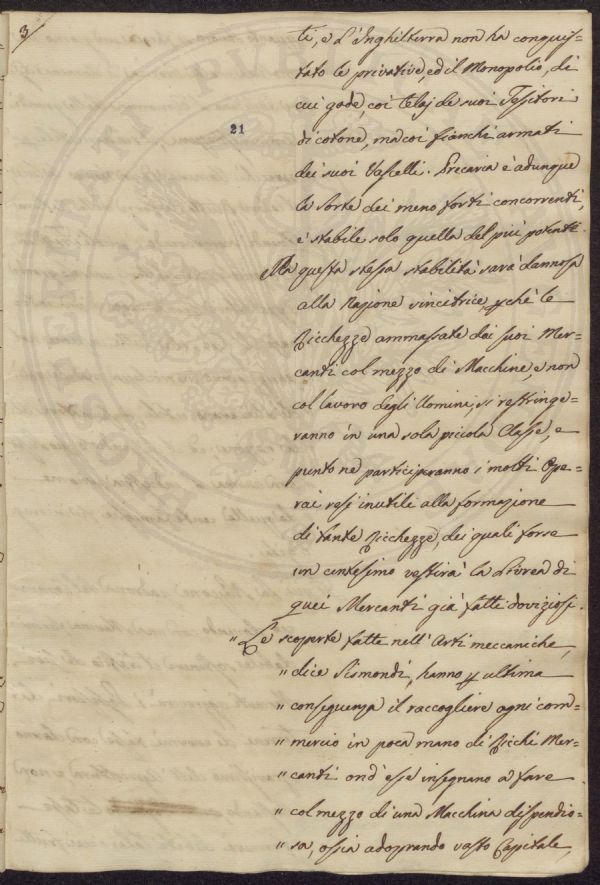 3
21
ti, e L'Inghilterra non ha conquis=
tato le privative, ed il Monopolio, di
cui gode, coi telaj de suoi Tessitori
di cotone, ma coi fianchi armati
dei suoi Vascelli. Precaria è adunque
la sorte dei meno forti concorrenti,
è stabile solo quella del più potente.
Ma questa stessa stabilità sarà dannosa
alla Nazione vincitrice, pché le
Ricchezze ammassate dai suoi Mer=
canti col mezzo di Macchine, e non
col lavoro degli Uomini, si restringe=
ranno in una sola piccola Classe, e
punto ne participeranno i molti Ope=
rai resi inutili alla formazione
di tante Ricchezze, dei quali forse
un centesimo vestirà la Livrea di
quei Mercanti già fatti doviziosi.
" Le scoperte fatte nell'Arti meccaniche,
" dice Sismondi, hanno p ultima
" conseguenza il raccogliere ogni com=
" mercio in poca mano di Ricchi Mer=
" canti ond'esse insegnano a fare
" col mezzo di una Macchina dispendio=
" sa, ossia adoprando vasto Capitale,